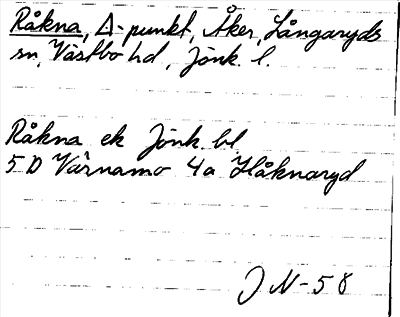 Råkna, Δ-punkt, Åker, Långaryds
sn, Västbo hd, Jönk. l.
Råkna ek Jönk. bl.
5 D Värnamo 4a Håknaryd
J N-58